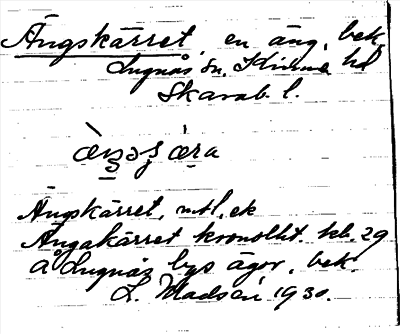 Ängskärret, en äng, bek.
Lugnås sn, Kinne hd
Skarab. l.
Ängskärret, mtl, ek
Ängakärret kronolht. kb. 29
å Lugnås bys ägor, bek.
L. Madsén 1930.